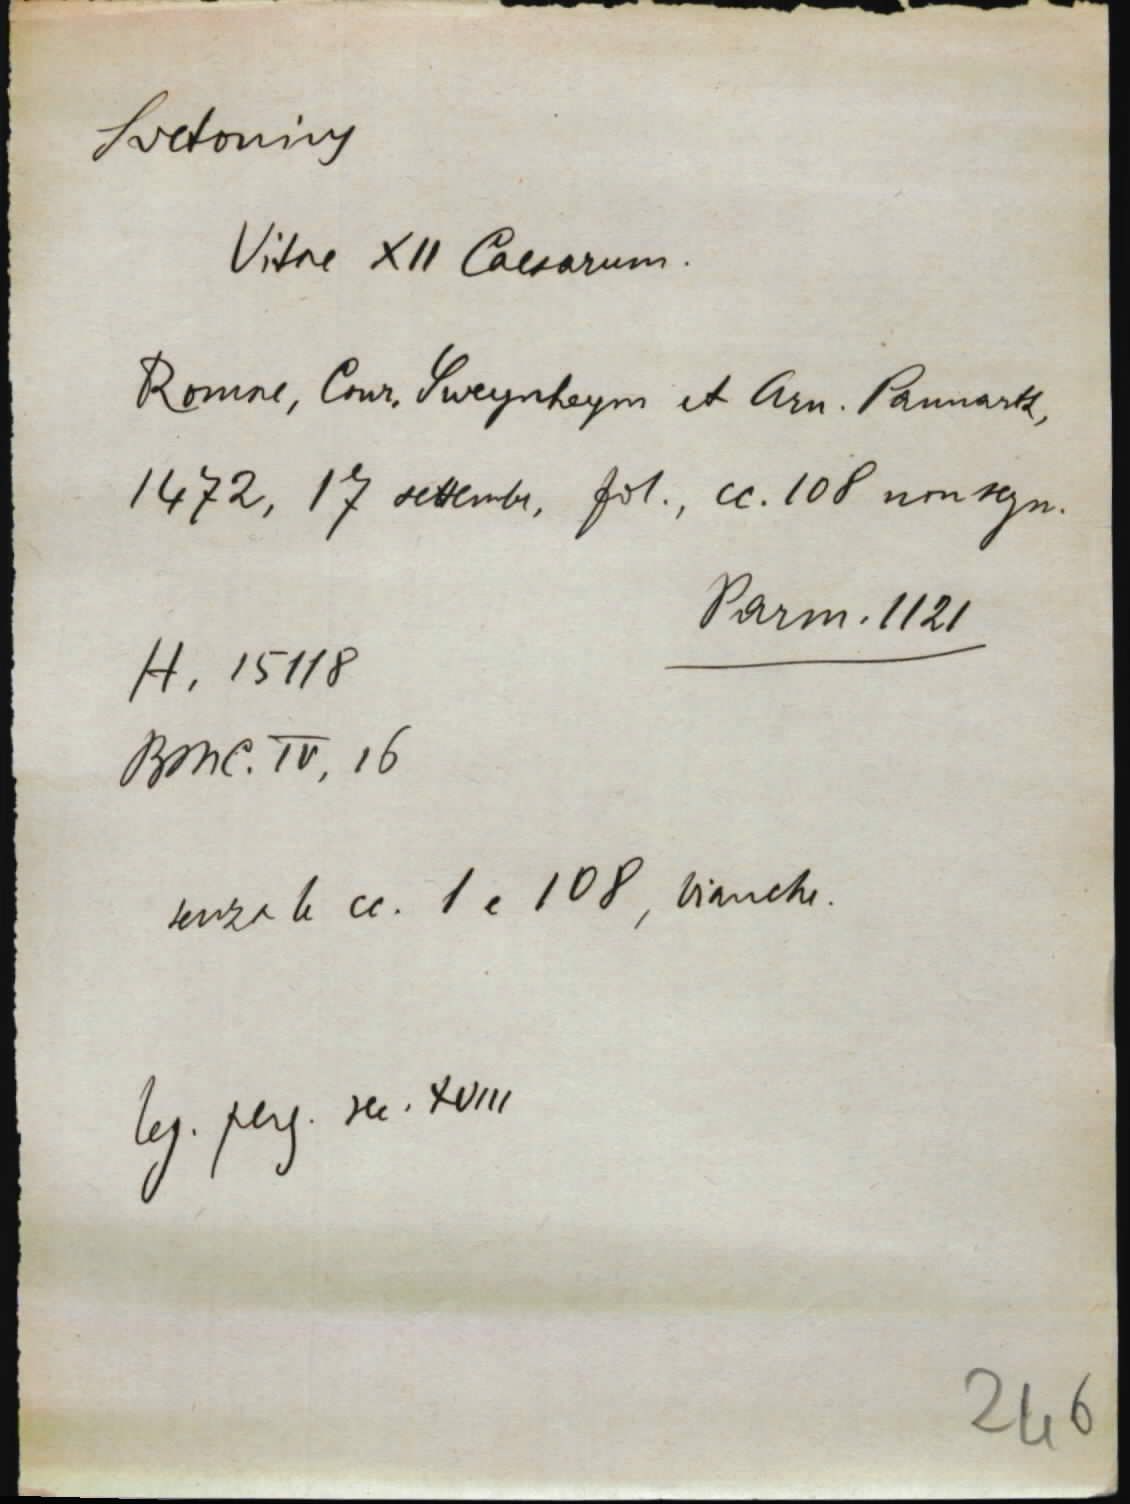 Svetonius
Vitae XII Caesarum.
Romae, Conr. Sweynheym et Arn. Pannartz,
1472, 17 settembr., fol., cc. 108 non segn.
Parm. 1121
H. 15118
BMC. IV, 16
senza le cc. 1 e 108, bianche.
leg. perg. sec. XVIII
246